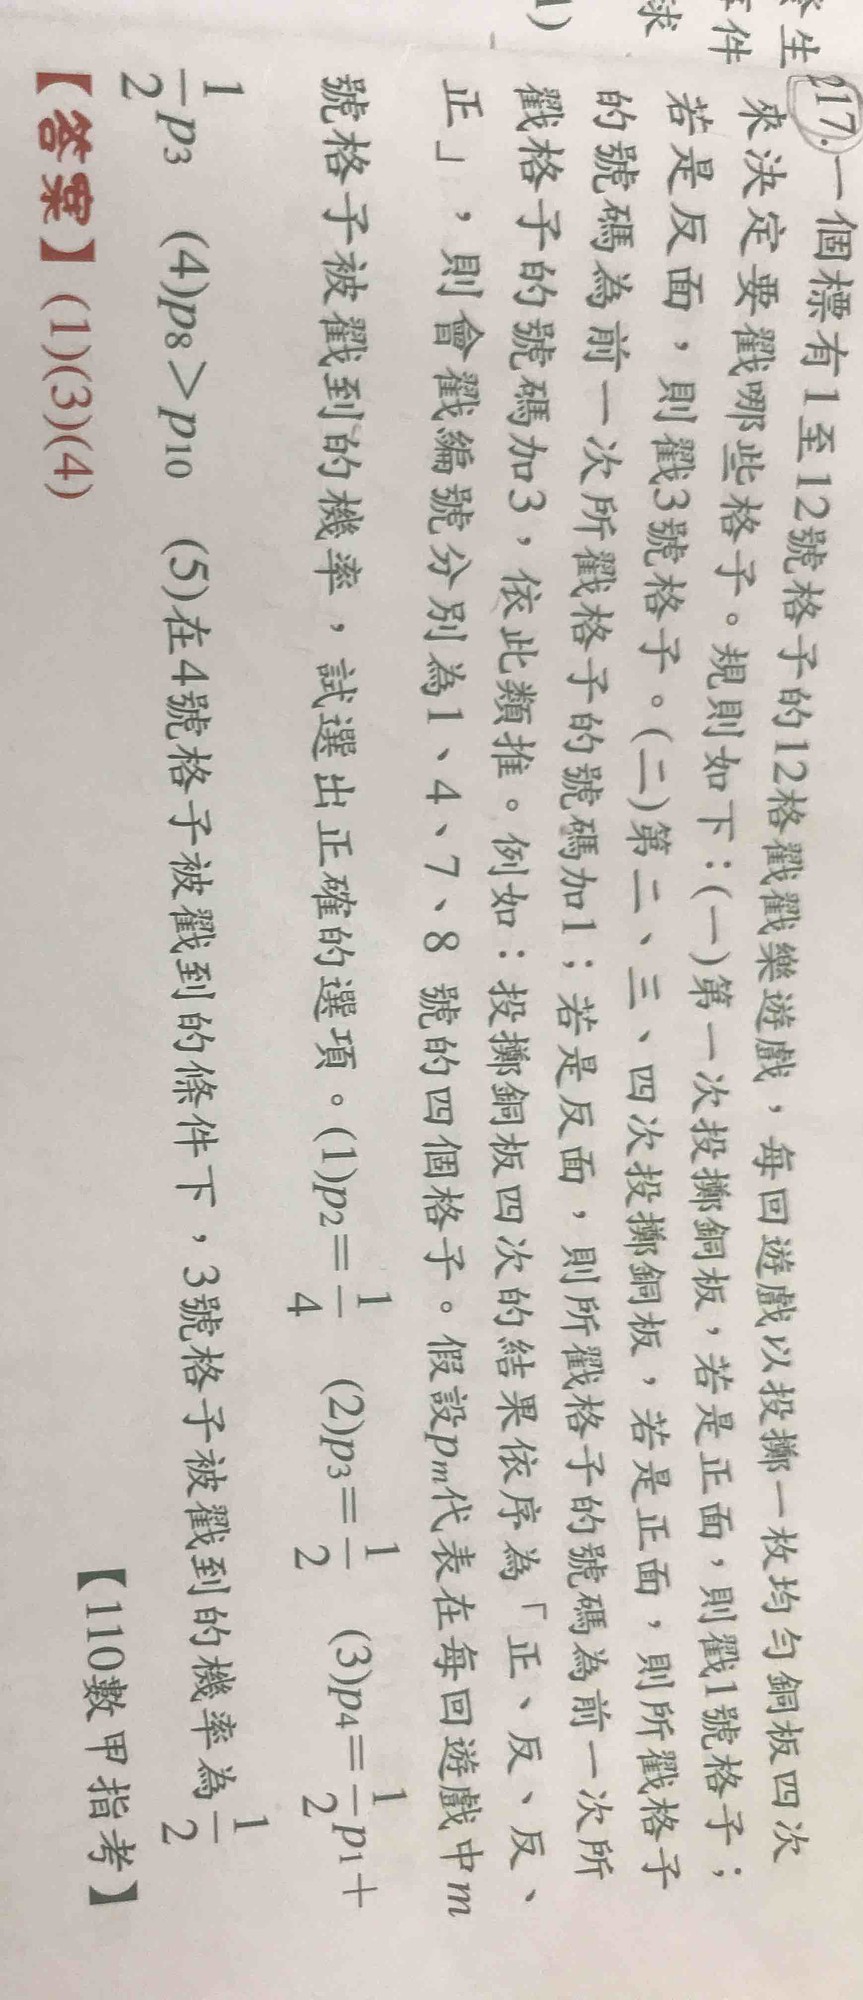 生
件
求
1)
17.一個標有1至12號格子的12格戳戳樂遊戲，每回遊戲以投擲一枚均勻銅板四次
來決定要戳哪些格子。規則如下：(一)第一次投擲銅板，若是正面，則戳1號格子；
若是反面，則戳3號格子。(二)第二、三、四次投擲銅板，若是正面，則所戳格子
的號碼為前一次所戳格子的號碼加1；若是反面，則所戳格子的號碼為前一次所
戳格子的號碼加3，依此類推。例如：投擲銅板四次的結果依序為「正、反、反、
正」，則會戳編號分別為1、4、7、8 號的四個格子。假設pm代表在每回遊戲中m
號格子被戳到的機率，試選出正確的選項。(1)p2=1/4 (2)p3=1/2 (3)p4=1/2p1+
1/2p3 (4)p8>p10 (5)在4號格子被戳到的條件下，3號格子被戳到的機率為1/2
【110數甲指考】
【答案】(1)(3)(4)